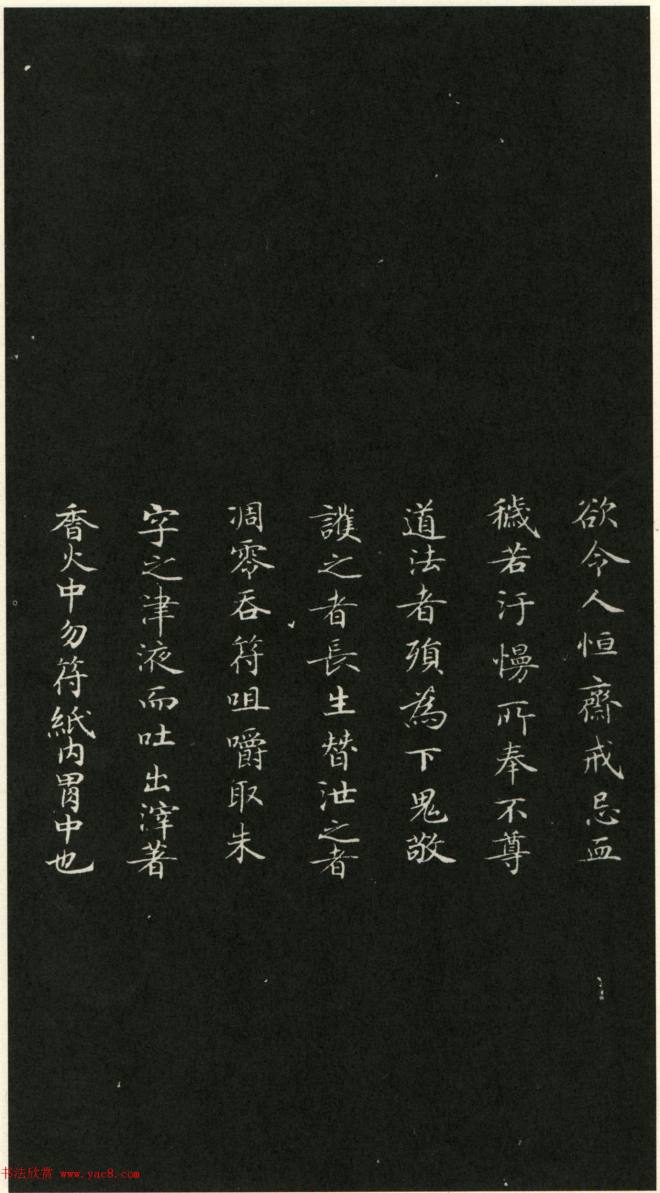 欲令人恒齋戒忌血
穢若汙慢所奉不尊
道法者殞為下鬼敬
護之者長生替泄之者
凋零吞符咀嚼取朱
字之津液而吐出滓著
香火中勿符紙內胃中也
书法欣赏 www.yac8.com